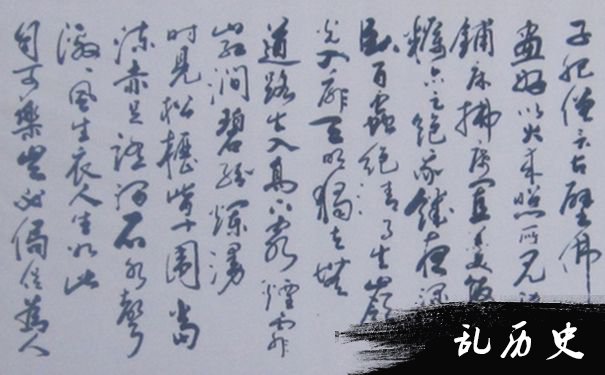 子肥僧言古壁佛
画好以火来照所见稀
铺床拂席置羹饭
粝亦足饱我饥夜深
卧百蟲绝清月出岭
光入扉天明独去無
道路出入高下穷煙霏
山红澗碧纷爛漫
时见松櫪皆十围當
流赤足踏澗石水聲
激〻风生衣人生如此
自可樂岂必局促为人
乱历史